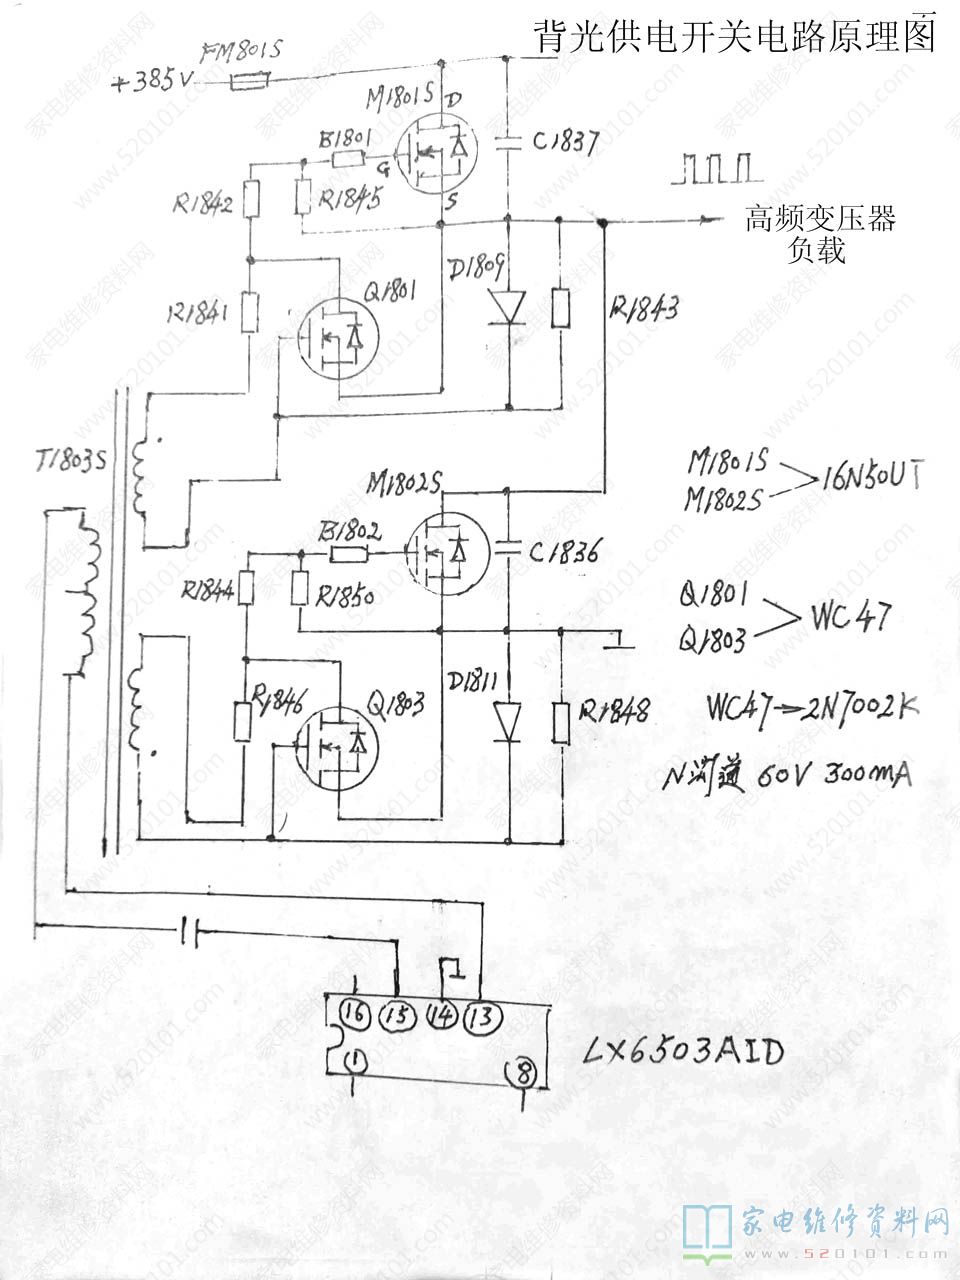 背光供电开关电路原理图
FM801S
+385V
M1801S
D
B1801
G
C1837
R1842
R1845
S
高频变压器
负载
D1809
Q1801
R1841
R1843
T1803S
M1802S
M1801S
M1802S
16N50UT
B1802
C1836
R1844
R1850
Q1801
Q1803
WC47
D1811
R1846
Q1803
R1848
WC47→2N7002K
N沟道 60V 300mA
16
15
14
13
1
8
LX6503AID
家电维修资料网
www.520101.com